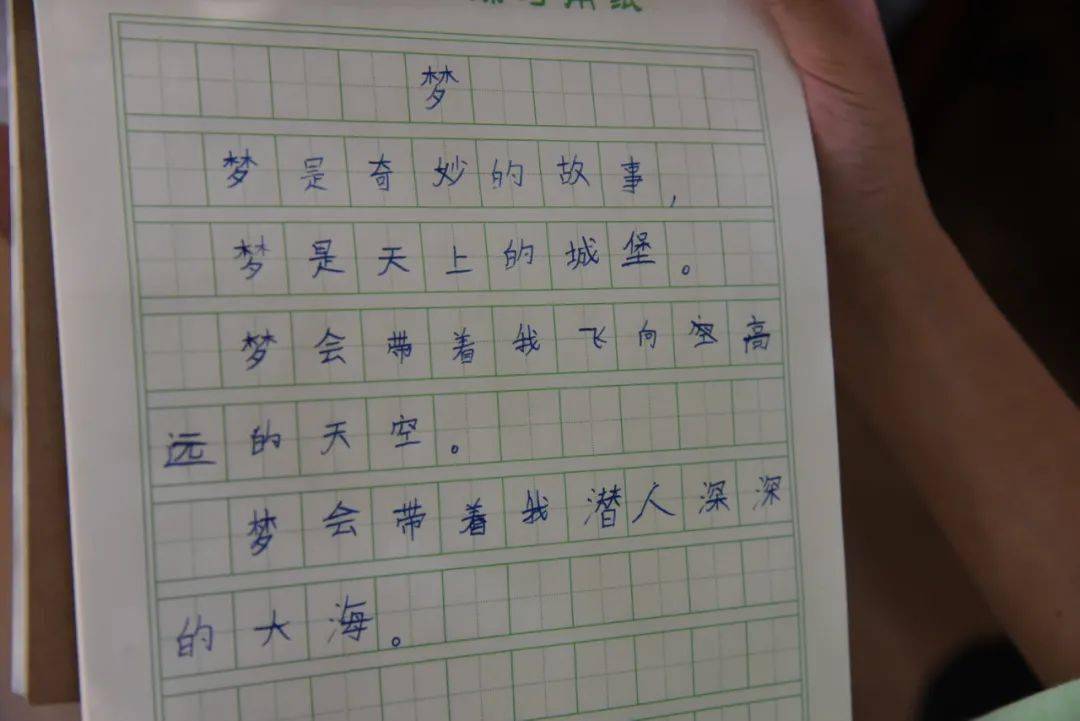 梦
梦是奇妙的故事,
梦是天上的城堡。
梦会带着我飞向空高
远的天空。
梦会带着我潜人深深
的大海。